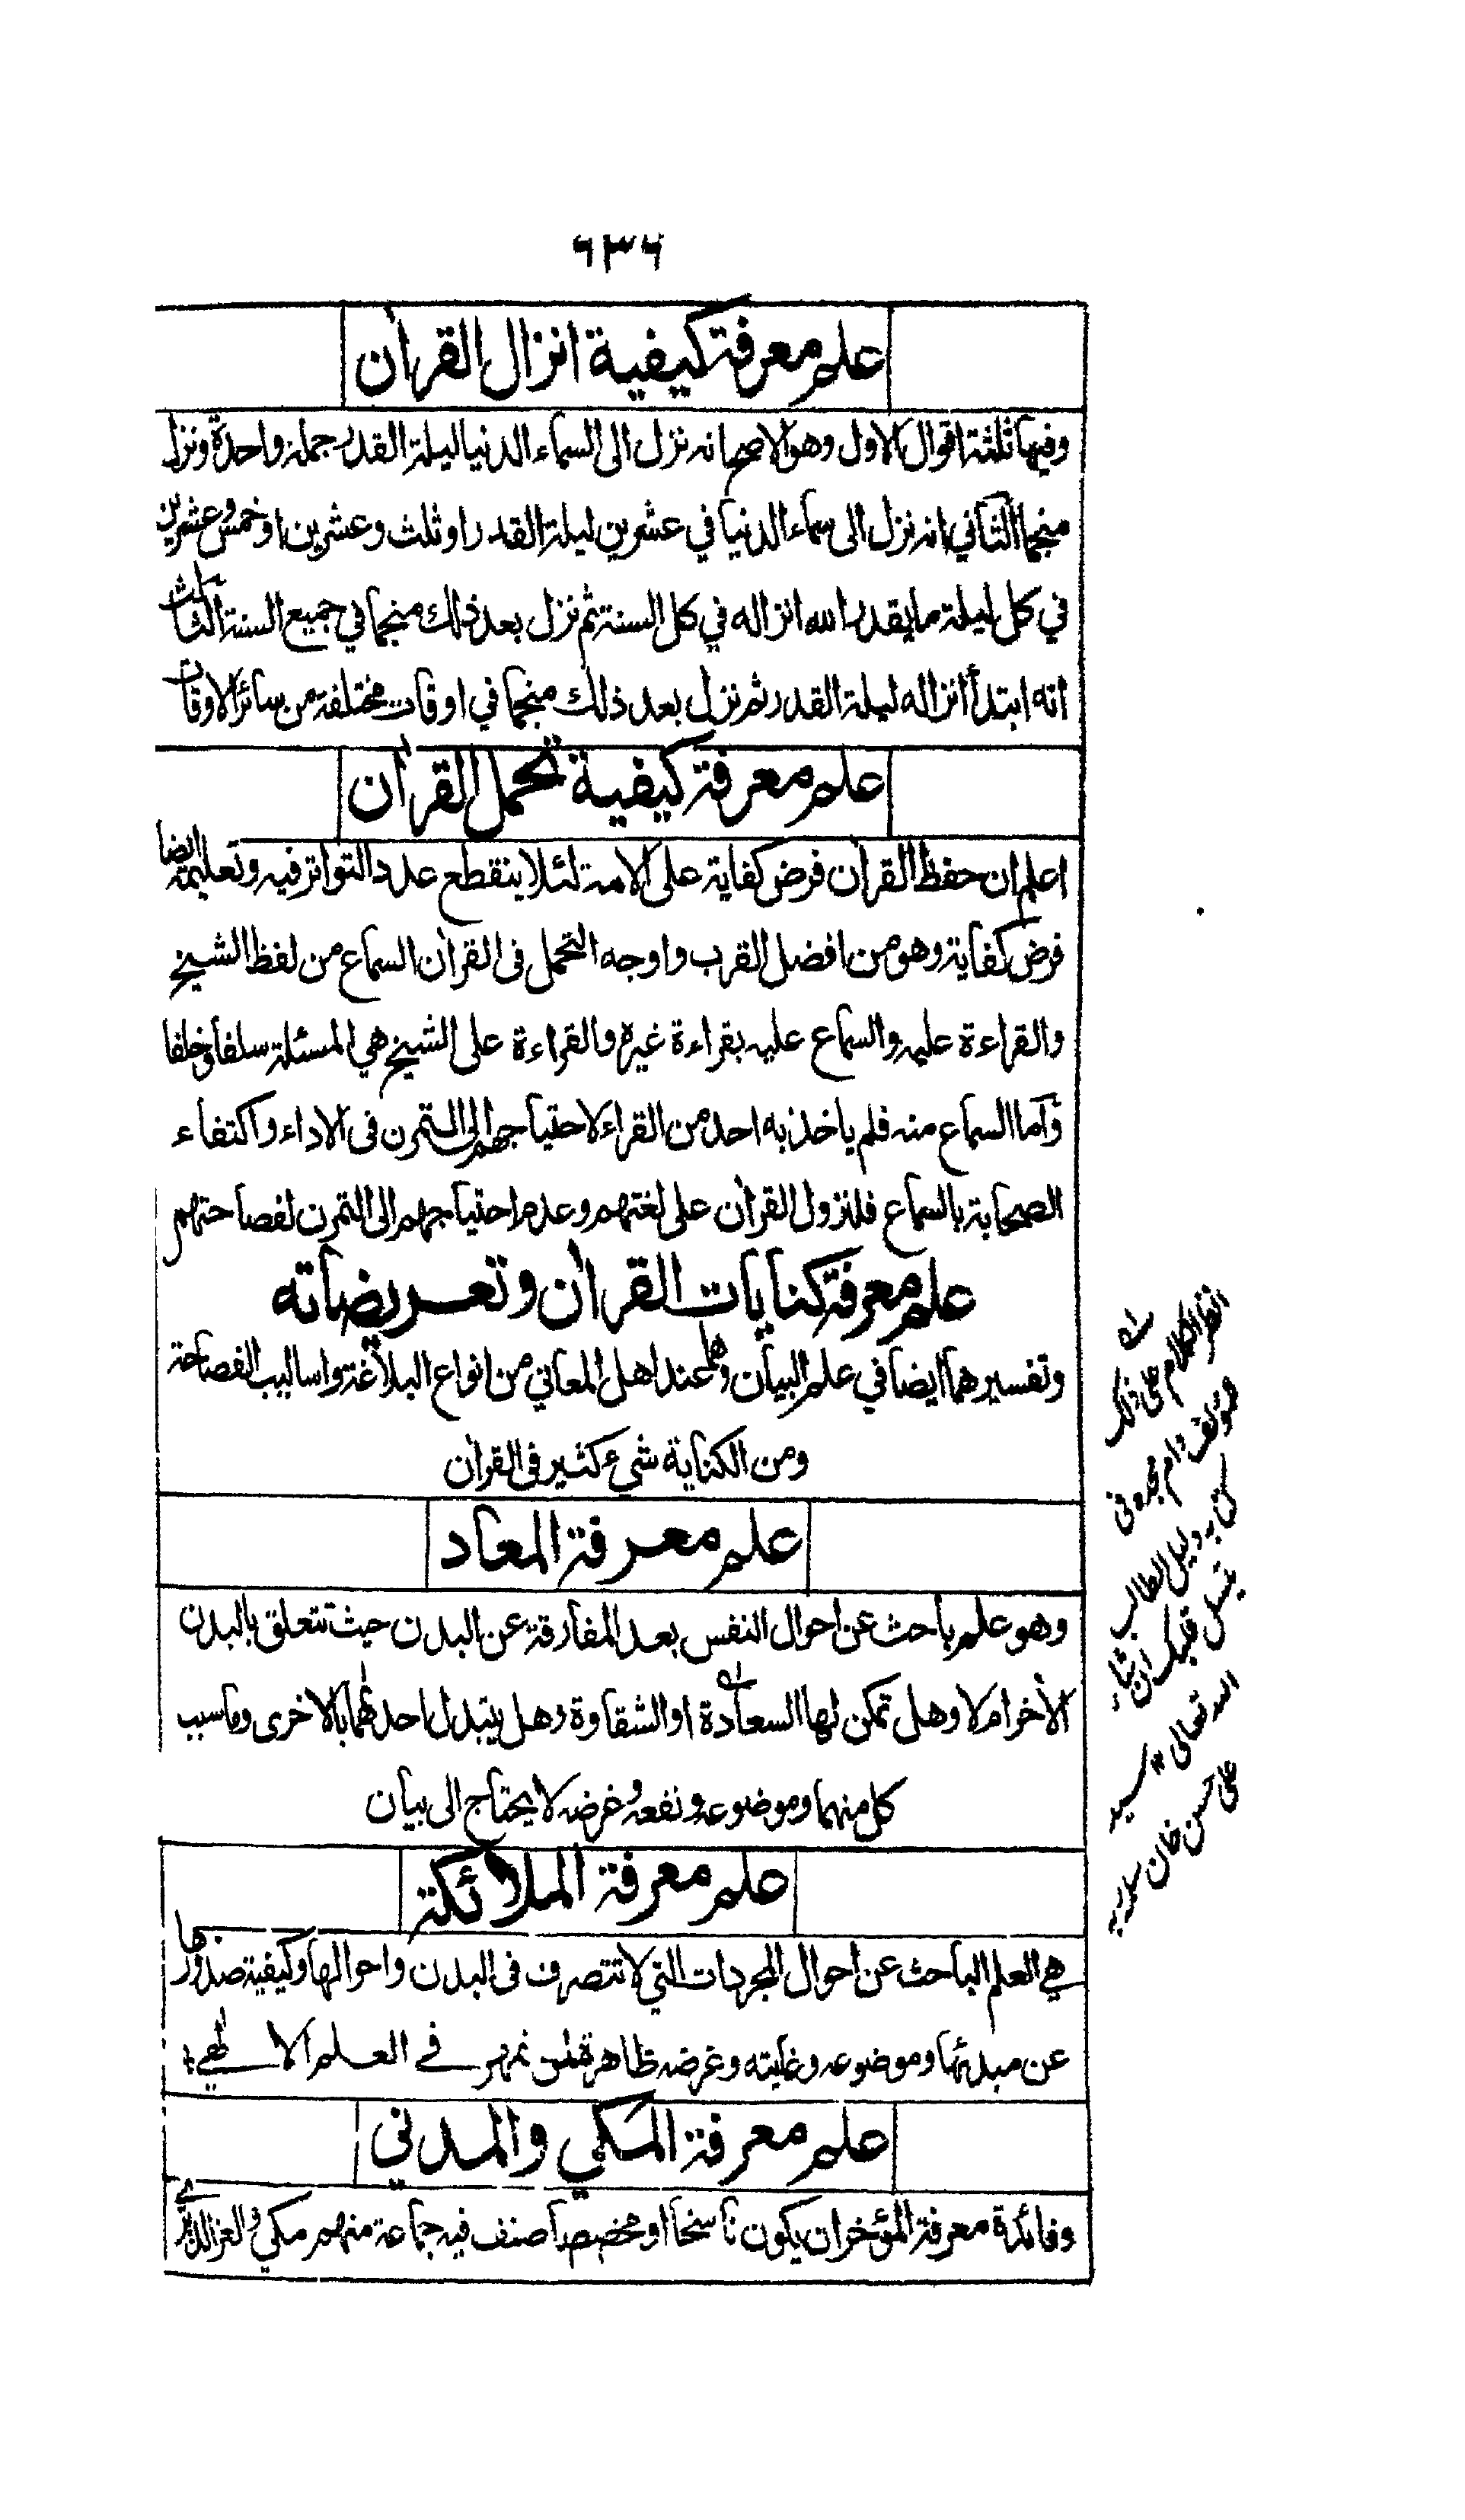 ٦٣٦
علم معرفة كيفية انزال القرآن
وفيها ثلثة اقوال الاول وهو الاصح انه نزل الى السماء الدنيا ليلة القدر جملة واحدة ونزل
منجما الثاني انه نزل الى سماء الدنيا في عشرين ليلة القدر او ثلث وعشرين او خمس وعشرين
في كل ليلة ما يقدر الله انزاله في كل السنة ثم نزل بعد ذلك منجما في جميع السنة الثالث
انه ابتدأ انزاله ليلة القدر ثم نزل بعد ذلك منجما في اوقات مختلفة من سائر الاوقات
علم معرفة كيفية تحمل القرآن
اعلم ان حفظ القرآن فرض كفاية على الامة لئلا ينقطع عدد التواتر فيه وتعليمه ايضا
فرض كفاية وهو من افضل القرب واوجه التحمل فى القرآن السماع من لفظ الشيخ
والقراءة عليه والسماع عليه بقراءة غيره والقراءة على الشيخ هي المسئلة سلفا وخلفا
وأما السماع منه فلم ياخذ به احد من القراء لاحتياجهم الى التمرن فى الاداء واكتفاء
الصحابة بالسماع فلنزول القرآن على لغتهم وعدم احتياجهم الى التمرن لفصاحتهم
علم معرفة كنايات القرآن وتعريضاته
وتفسيرهما ايضا في علم البيان وهما عند اهل المعاني من انواع البلاغة واساليب الفصاحة
ومن الكناية شيء كثير فى القرآن
علم معرفة المعاد
وهو علم باحث عن احوال النفس بعد المفارقة عن البدن حيث تتعلق بالبدن
الأخر ام لا وهل تمكن لها السعادة او الشقاوة وهل يتبدل احدهما بالاخرى وما سبب
كل منهما وموضوعه ونفعه وغرضه لا يحتاج الى بيان
علم معرفة الملائكة
هي العلم الباحث عن احوال المجردات التي لا تتصرف فى البدن واحوالها وكيفية صدورها
عن مبدئها وموضوعه وغايته وغرضه ظاهرة لمن تمهر في العلم الالهي
علم معرفة المكي والمدني
وفائدة معرفة المؤخر ان يكون ناسخا او مخصصا صنف فيه جماعة منهم مكي والعز الديريني
انظر الكلام على ذلك
دليل الطالب
ان شاء
الله تعالى سيد
على حسن خان سلمه